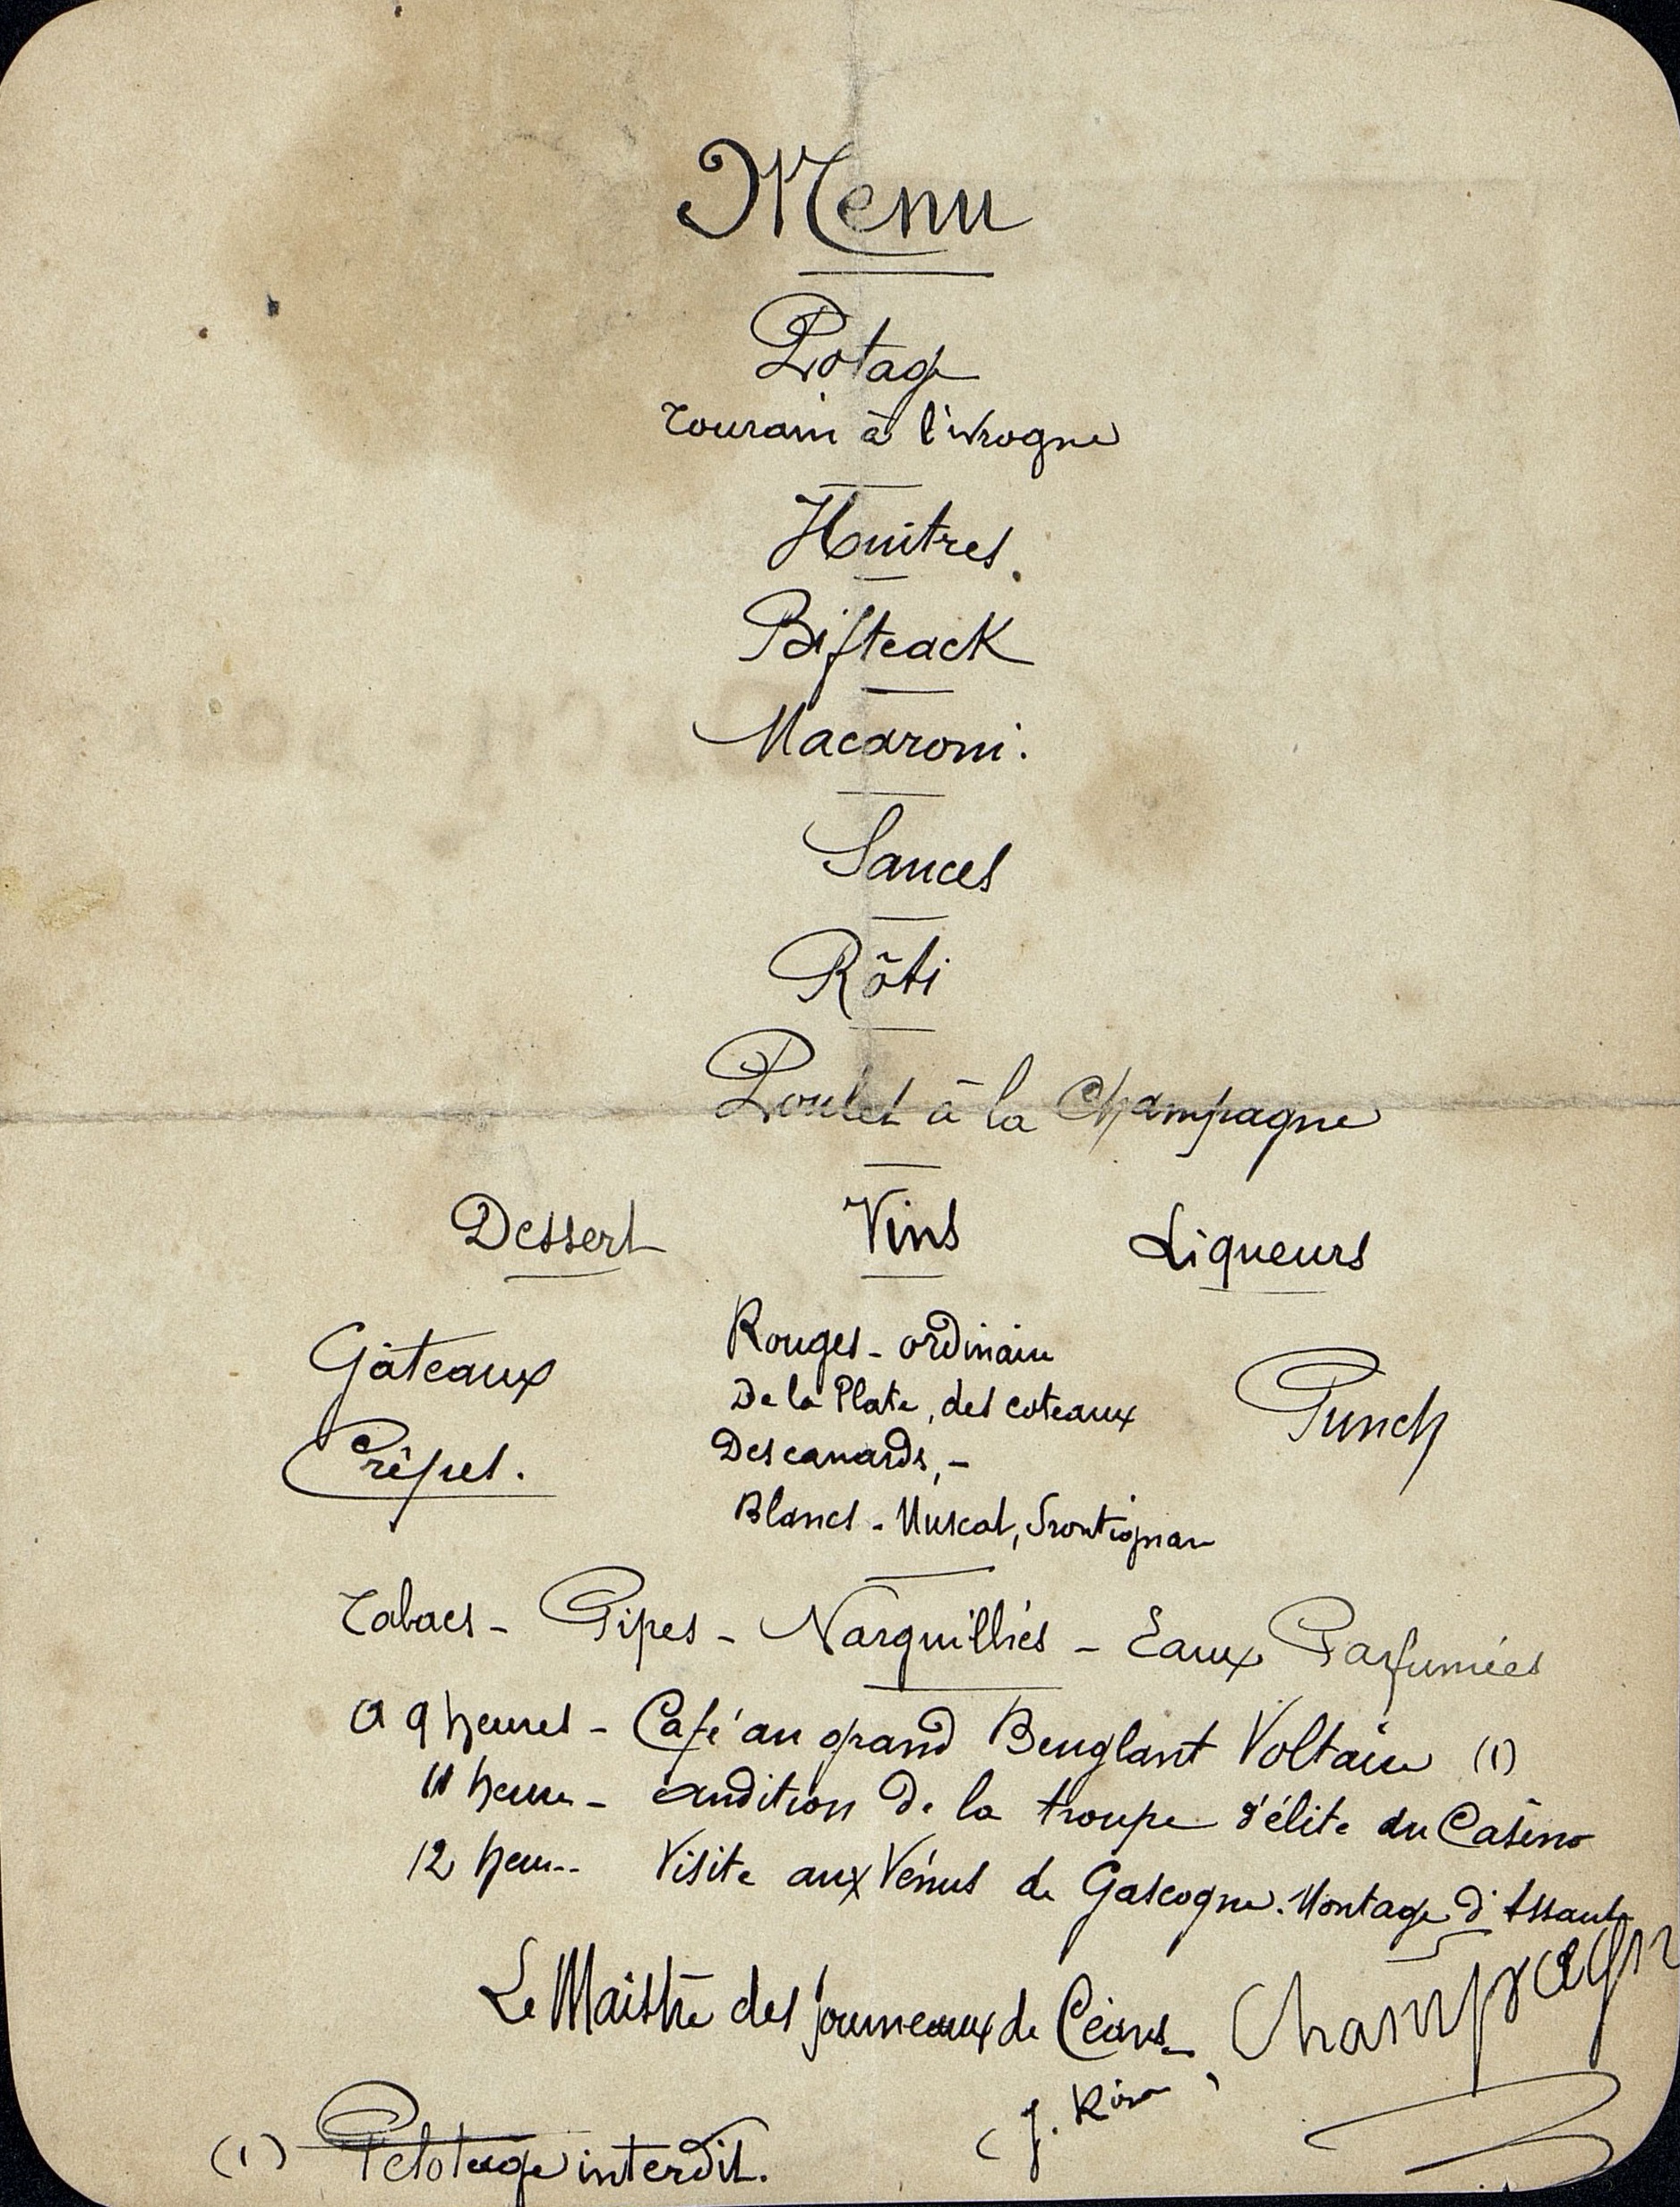 Menu
Potage
Tourain à l'ivrogne
Huitres.
Bifteack
Macaroni.
Sauces
Rôti
Poulet à la Champagne
Dessert Vins Liqueurs
Gâteaux
Crêpes.
Rouges - ordinaire
De la Plate, des coteaux
Des canards, -
Blancs - Muscat, Frontignan
Punch
Tabacs - Pipes - Narguilliés - Eaux Parfumées
A 9 heures - Café au grand Beuglant Voltaire (1)
11 heures - audition de la troupe d'élite du Casino
12 heu.. Visite aux Vénus de Gascogne. Montage d'Assaut
Le Maistre des fourneaux de Céans, Champagne
(J.
(1) Pelotage interdit.